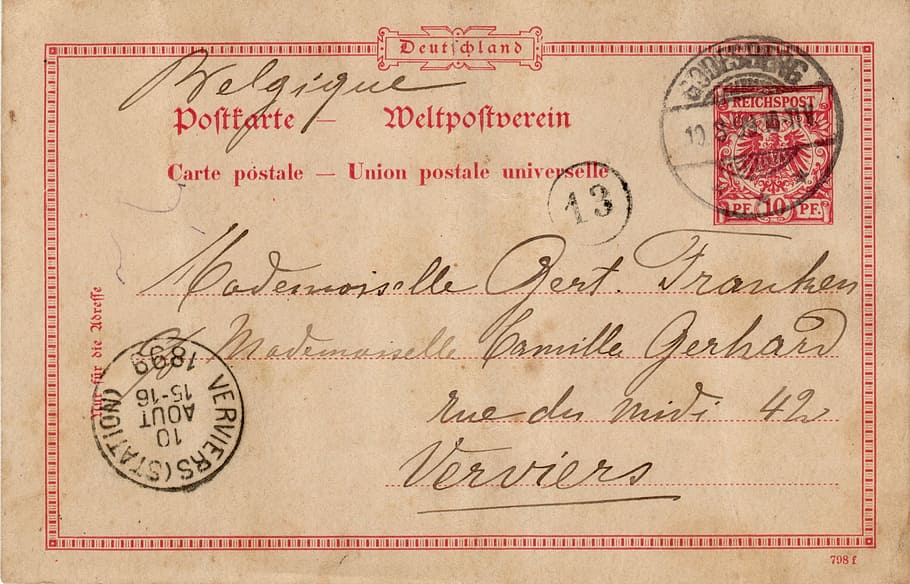 Deutschland
Belgique
Postkarte — Weltpostverein
Carte postale — Union postale universelle
GODESBERG
REICHSPOST
10 PF.
13
Mademoiselle Gert. Franken
Mademoiselle Camille Gerhard
rue du midi 42
Verviers
Nur für die Adresse
VERVIERS (STATION)
10
AOUT
15-16
1899
798 f